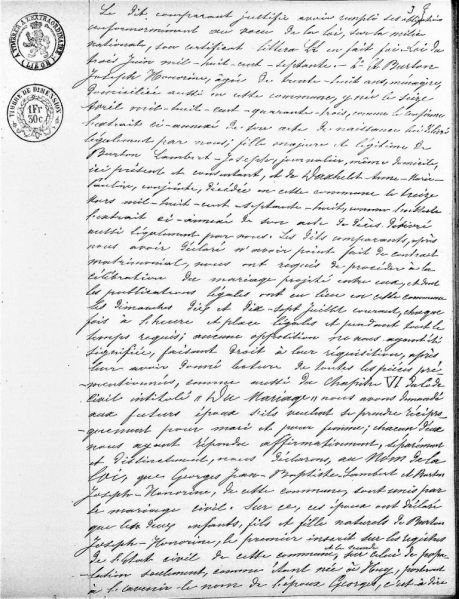 TIMBRE A L'EXTRAORDINAIRE
(LIÉGE)
TIMBRE DE DIMENSION
1 Fr
30c
Le dit comparant justifie avoir rempli ses obligations
conformément au vœu de la loi, sur la milice
nationale, son certificat littera en fait foi
trois Juin mil-huit-cent-septante et Burton
Joseph Honorine, âgée de trente-huit ans, ménagère,
domiciliée aussi en cette commune, y née le seize
Avril mil-huit-cent-quarante-trois, comme le confirme
l'extrait ci-annexé de son acte de naissance
légalement par nous; fille majeure et légitime de
Burton Lambert-Joseph, journalier, même domicile,
ici présent et consentant, et de Anne-Marie-
conjointe, décédée en cette commune le treize
mil-huit-cent-septante-huit,
l'extrait ci-annexé de son acte de décès délivré
aussi légalement par nous. Les dits comparants, après
nous avoir déclaré n'avoir point fait de contrat
matrimonial, nous ont requis de procéder à la
célébration du mariage projeté entre eux, et dont
les publications légales ont eu lieu en cette commune
les dimanches dix et dix-sept Juillet courant, chaque
fois à l'heure et place légales et pendant tout le
temps requis; aucune opposition ne nous ayant été
signifiée, faisant droit à leur réquisition, après
leur avoir donné lecture de toutes les pièces pré-
mentionnées, comme aussi du Chapitre VI du Code
Civil intitulé "Du Mariage" nous avons demandé
aux futurs époux s'ils veulent se prendre récipro-
quement pour mari et pour femme; chacun d'eux
nous ayant répondu affirmativement, séparément
et distinctement, nous déclarons, au Nom de la
Loi, que Georges Jean-Baptiste-Lambert et Burton
Joseph-Honorine, de cette commune, sont unis par
le mariage civil. Sur ce, ces époux ont déclaré
que les deux enfants, fils et fille naturels de Burton
Joseph-Honorine, le premier inscrit sur les registres
de l'état civil de cette commune, et la seconde sur celui de popu-
lation seulement, comme étant née à Huy, porteront
à l'avenir le nom de l'époux Georges, c'est-à-dire